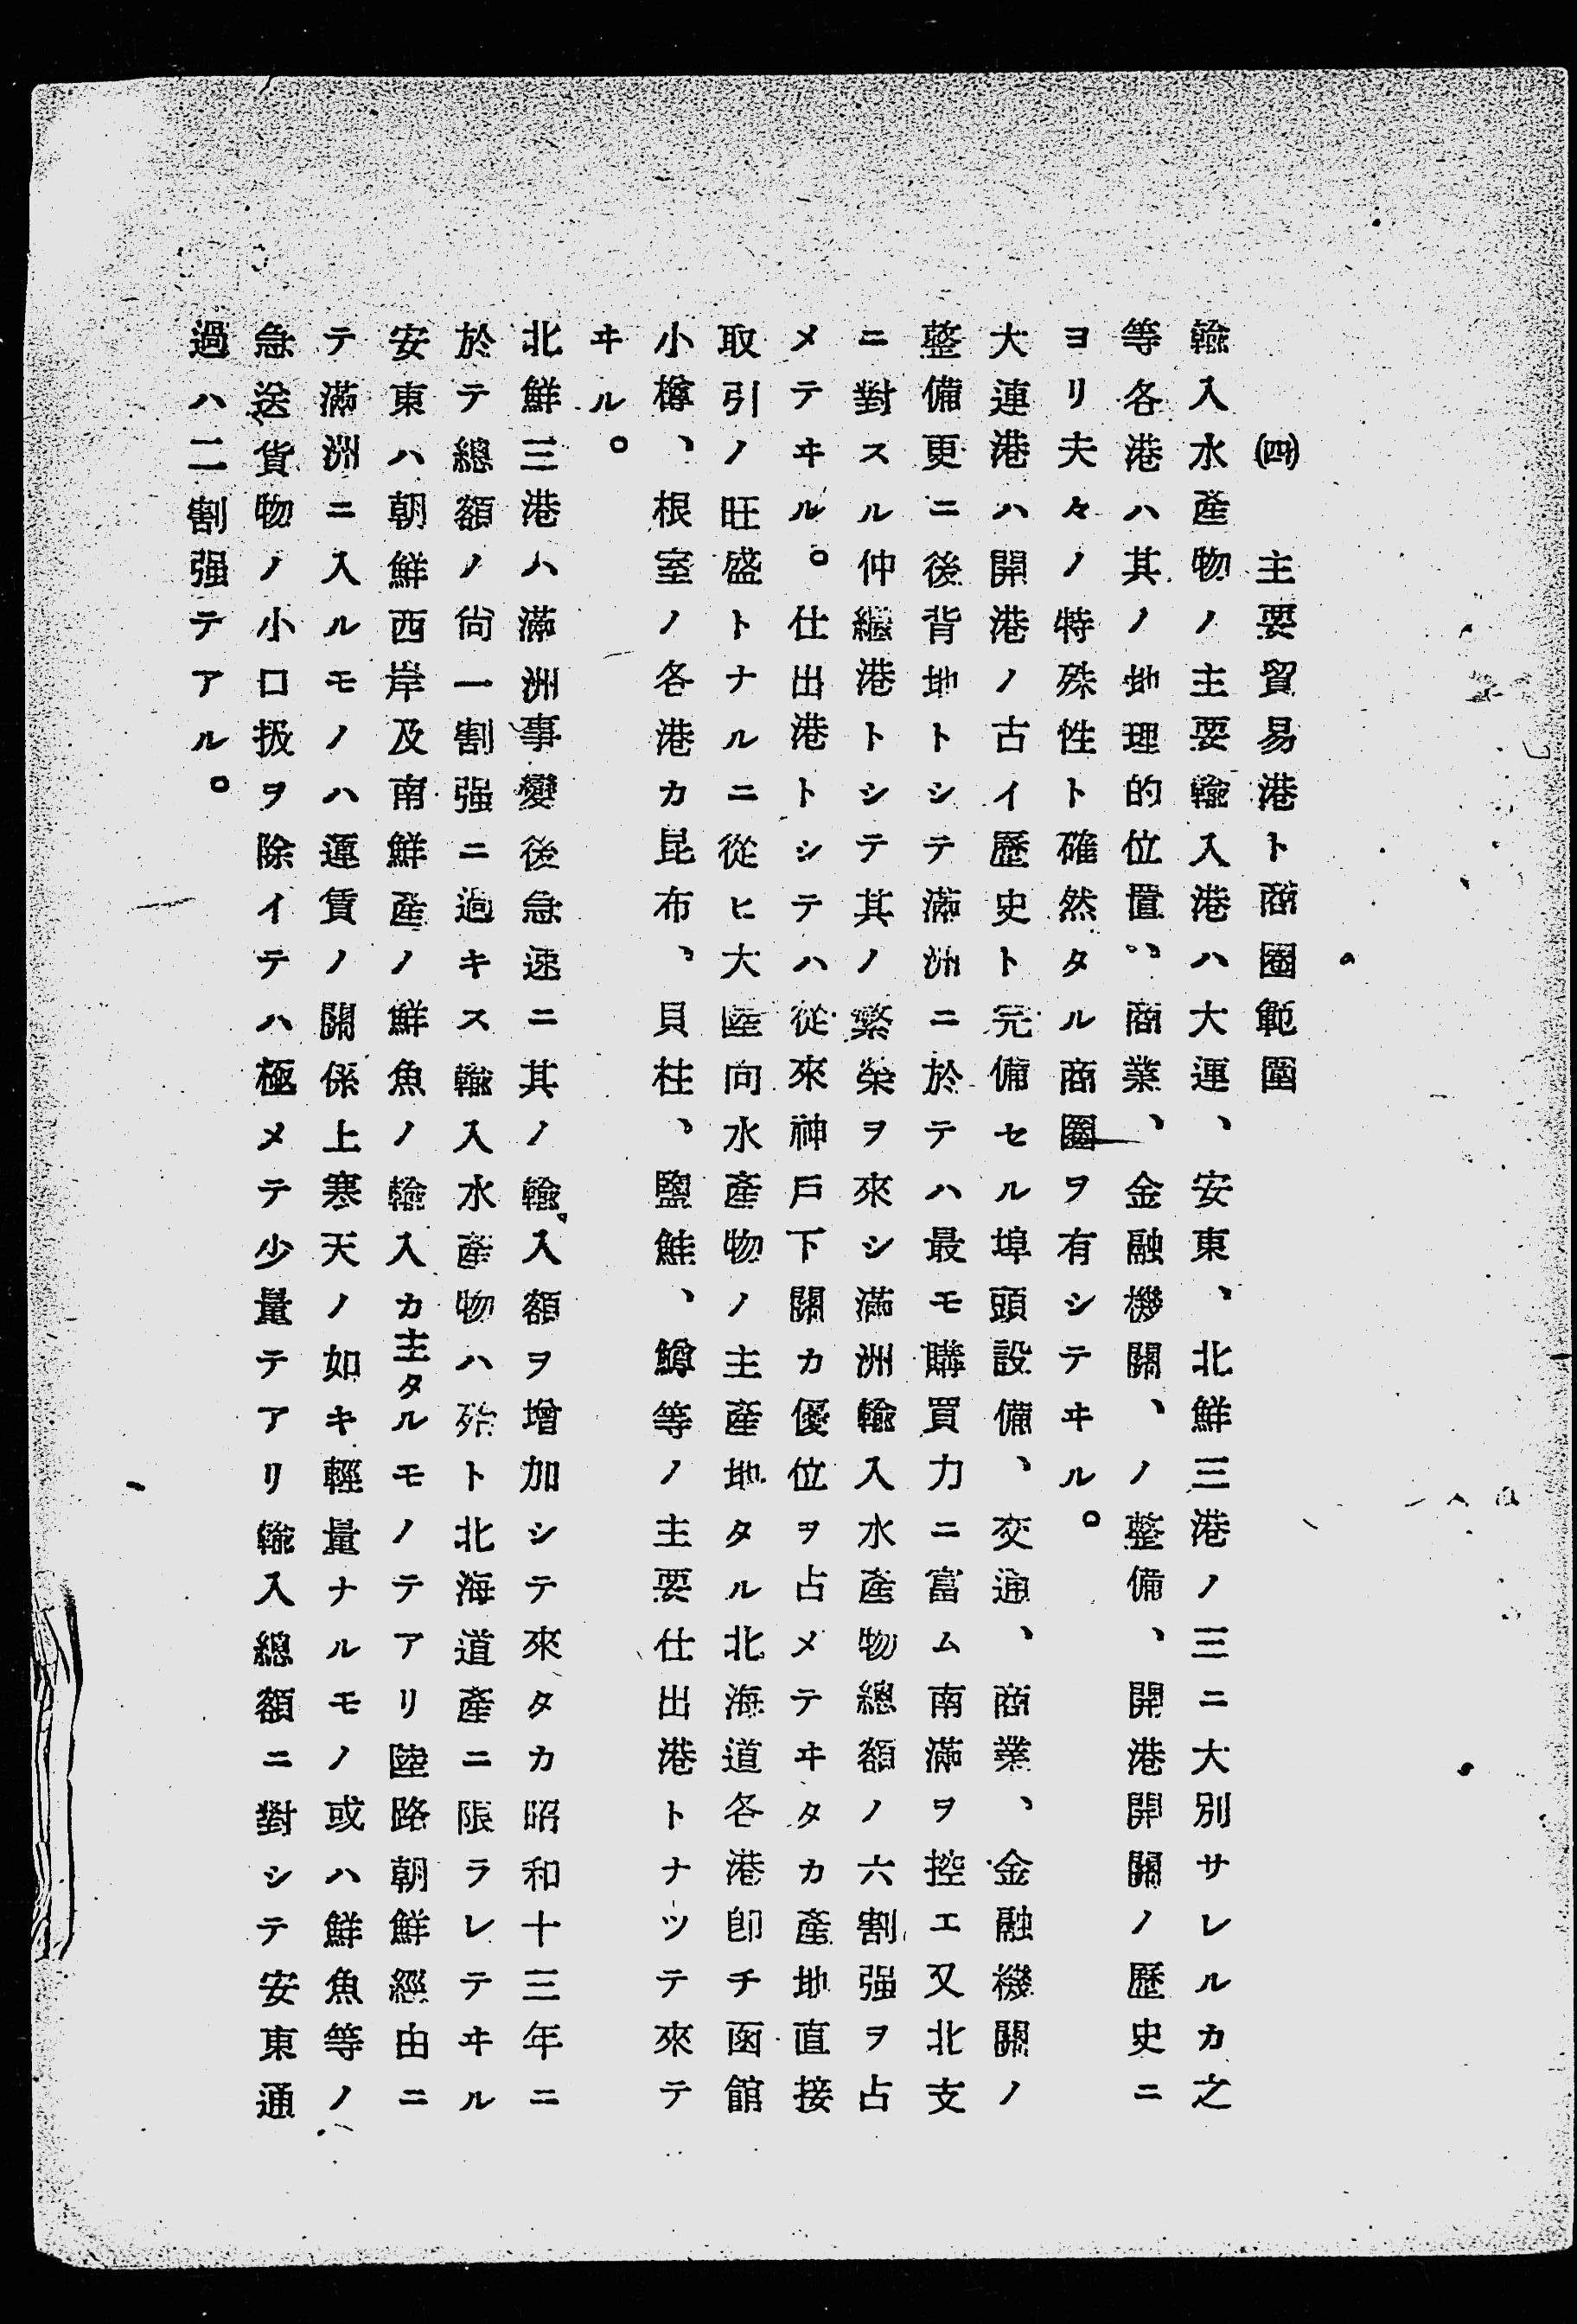 ㈣　主要貿易港ト商圈範圍
輸入水產物ノ主要輸入港ハ大連、安東、北鮮三港ノ三ニ大別サレルカ之
等各港ハ其ノ地理的位置、商業、金融機關、ノ整備、開港開關ノ歷史ニ
ヨリ夫々ノ特殊性ト確然タル商圈ヲ有シテヰル。
大連港ハ開港ノ古イ歷史ト完備セル埠頭設備、交通、商業、金融機關ノ
整備更ニ後背地トシテ滿洲ニ於テハ最モ購買力ニ富ム南滿ヲ控エ又北支
ニ對スル仲繼港トシテ其ノ繁榮ヲ來シ滿洲輸入水產物總額ノ六割强ヲ占
メテヰル。仕出港トシテハ從來神戶下關カ優位ヲ占メテヰタカ產地直接
取引ノ旺盛トナルニ從ヒ大陸向水產物ノ主產地タル北海道各港卽チ函館
小樽、根室ノ各港カ昆布、貝柱、鹽鮭、鱒等ノ主要仕出港トナツテ來テ
ヰル。
北鮮三港ハ滿洲事變後急速ニ其ノ輸入額ヲ增加シテ來タカ昭和十三年ニ
於テ總額ノ尙一割强ニ過キス輸入水產物ハ殆ト北海道產ニ限ラレテヰル
安東ハ朝鮮西岸及南鮮產ノ鮮魚ノ輸入カ主タルモノテアリ陸路朝鮮經由ニ
テ滿洲ニ入ルモノハ運賃ノ關係上寒天ノ如キ輕量ナルモノ或ハ鮮魚等ノ
急送貨物ノ小口扱ヲ除イテハ極メテ少量テアリ輸入總額ニ對シテ安東通
過ハ二割强テアル。